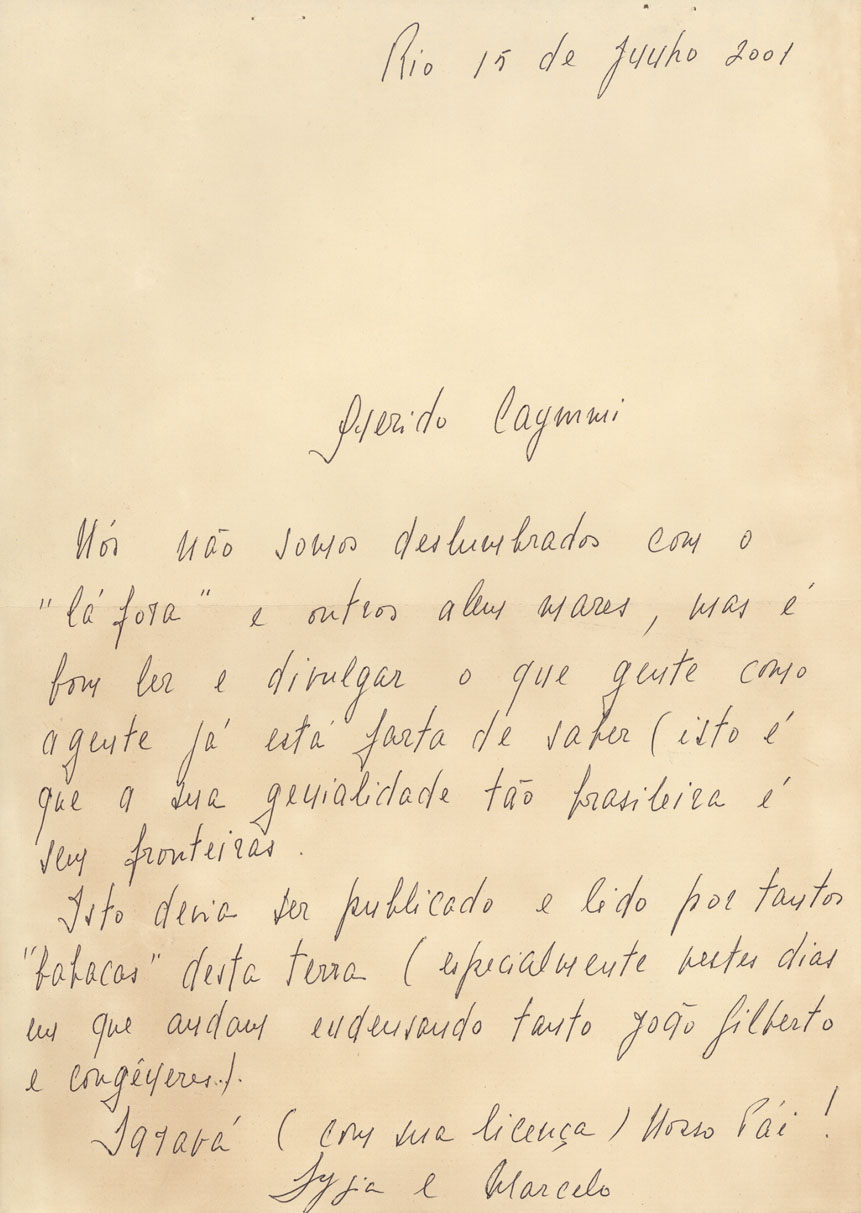 Rio 15 de Junho 2001
Querido Caymmi
Nós não somos deslumbrados com o
"lá fora" e outros além mares, mas é
bom ler e divulgar o que gente como
agente já está farta de saber (isto é
que a sua genialidade tão brasileira é
sem fronteiras.
Isto devia ser publicado e lido por tantos
"babacas" desta terra (especialmente nestes dias
em que andam endensando tanto João Gilberto
e congêneres..).
Saravá (com sua licença) Nosso Pái!
Lygia e Marcelo